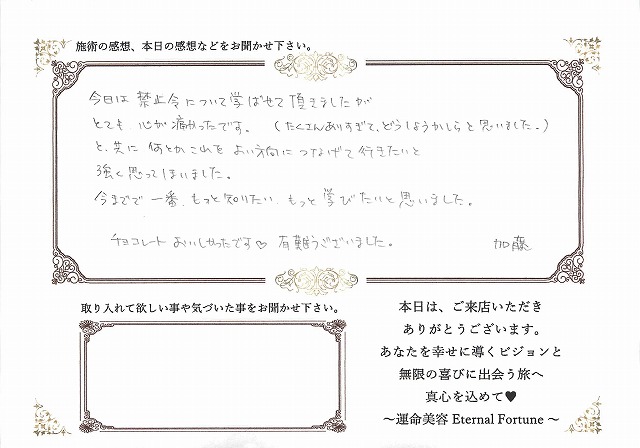 施術の感想、本日の感想などをお聞かせ下さい。
今日は 禁止令について学ばせて頂きましたが
とても 心が痛かったです。 (たくさんありすぎて、どうしようかしらと思いました。)
と、共に 何とか これを よい方向に つなげて行きたいと
強く思ってしまいました。
今までで 一番、もっと知りたい、もっと 学びたいと思いました。
チョコレート おいしかったです♡ 有難うございました。 加藤
取り入れて欲しい事や気づいた事をお聞かせ下さい。
本日は、ご来店いただき
ありがとうございます。
あなたを幸せに導くビジョンと
無限の喜びに出会う旅へ
真心を込めて♥
～運命美容 Eternal Fortune ～